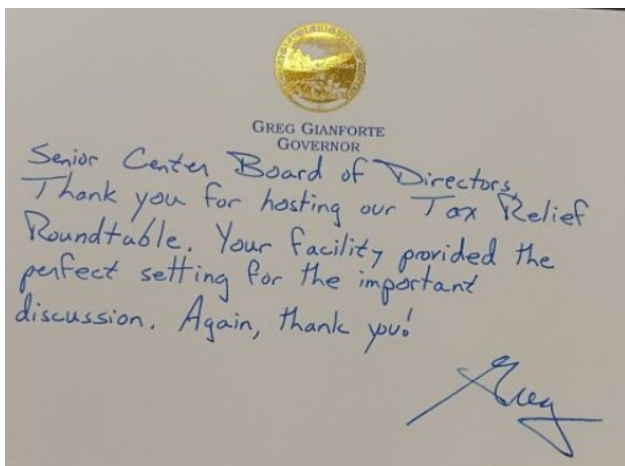 GREG GIANFORTE
GOVERNOR
Senior Center Board of Directors,
Thank you for hosting our Tax Relief
Roundtable. Your facility provided the
perfect setting for the important
discussion. Again, thank you!
Greg